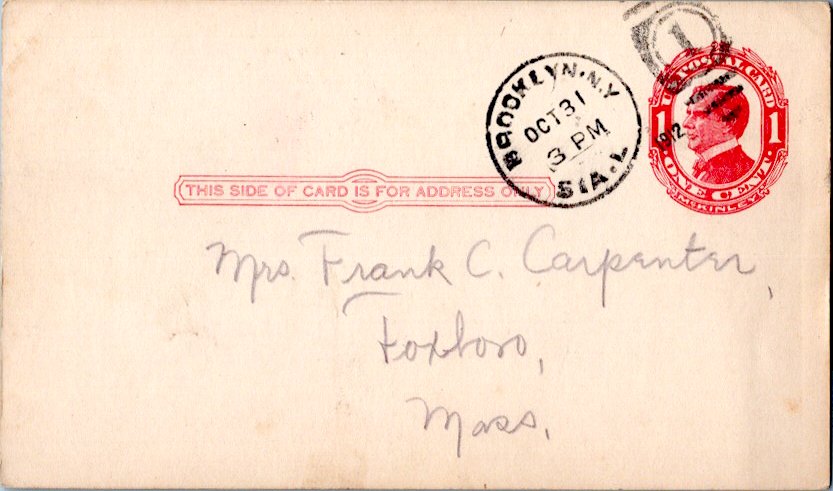 1
U.S. POSTAL CARD
BROOKLYN. N.Y.
OCT 31
3 PM
STA. L
1912
1 1
ONE CENT.
McKINLEY
THIS SIDE OF CARD IS FOR ADDRESS ONLY
Mrs. Frank C. Carpenter,
Foxboro,
Mass.